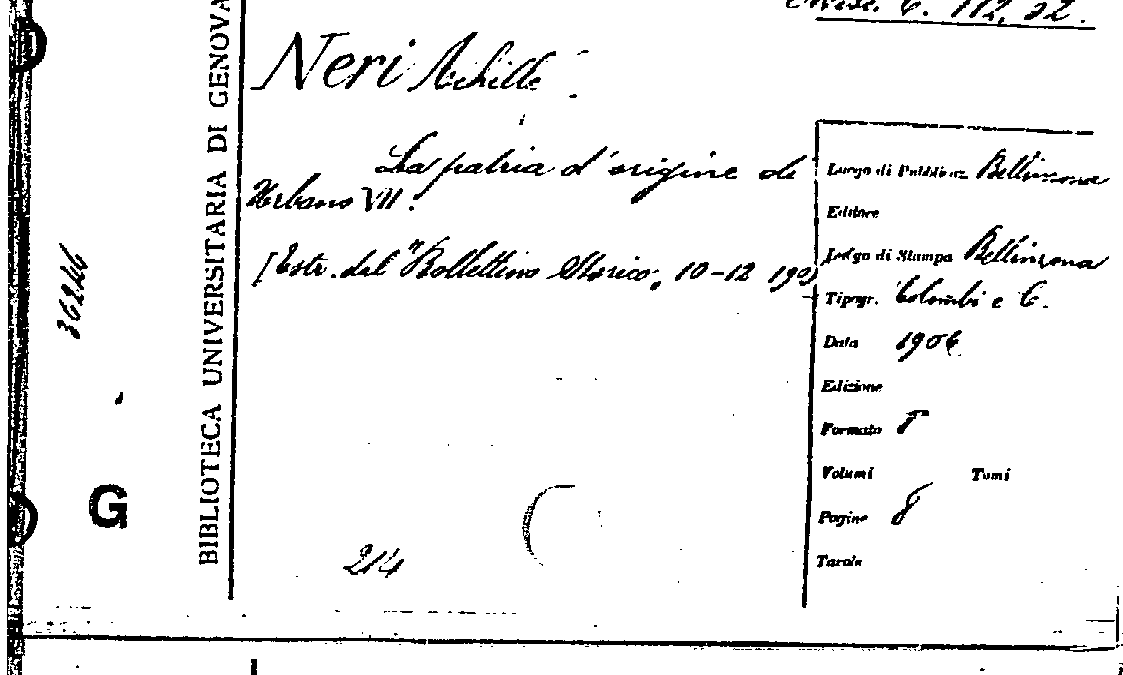 Misc. C. 112, 32.
Neri Achille.
La patria d'origine di
Urbano VII.
[Estr. dal "Bollettino Storico", 10-12 190
36246
BIBLIOTECA UNIVERSITARIA DI GENOVA
G
214
Luogo di Pubblicaz. Bellinzona
Editore
Luogo di Stampa Bellinzona
Tipogr. Colombi e C.
Data 1906
Edizione
Formato 8°
Volumi Tomi
Pagine 8
Tavole